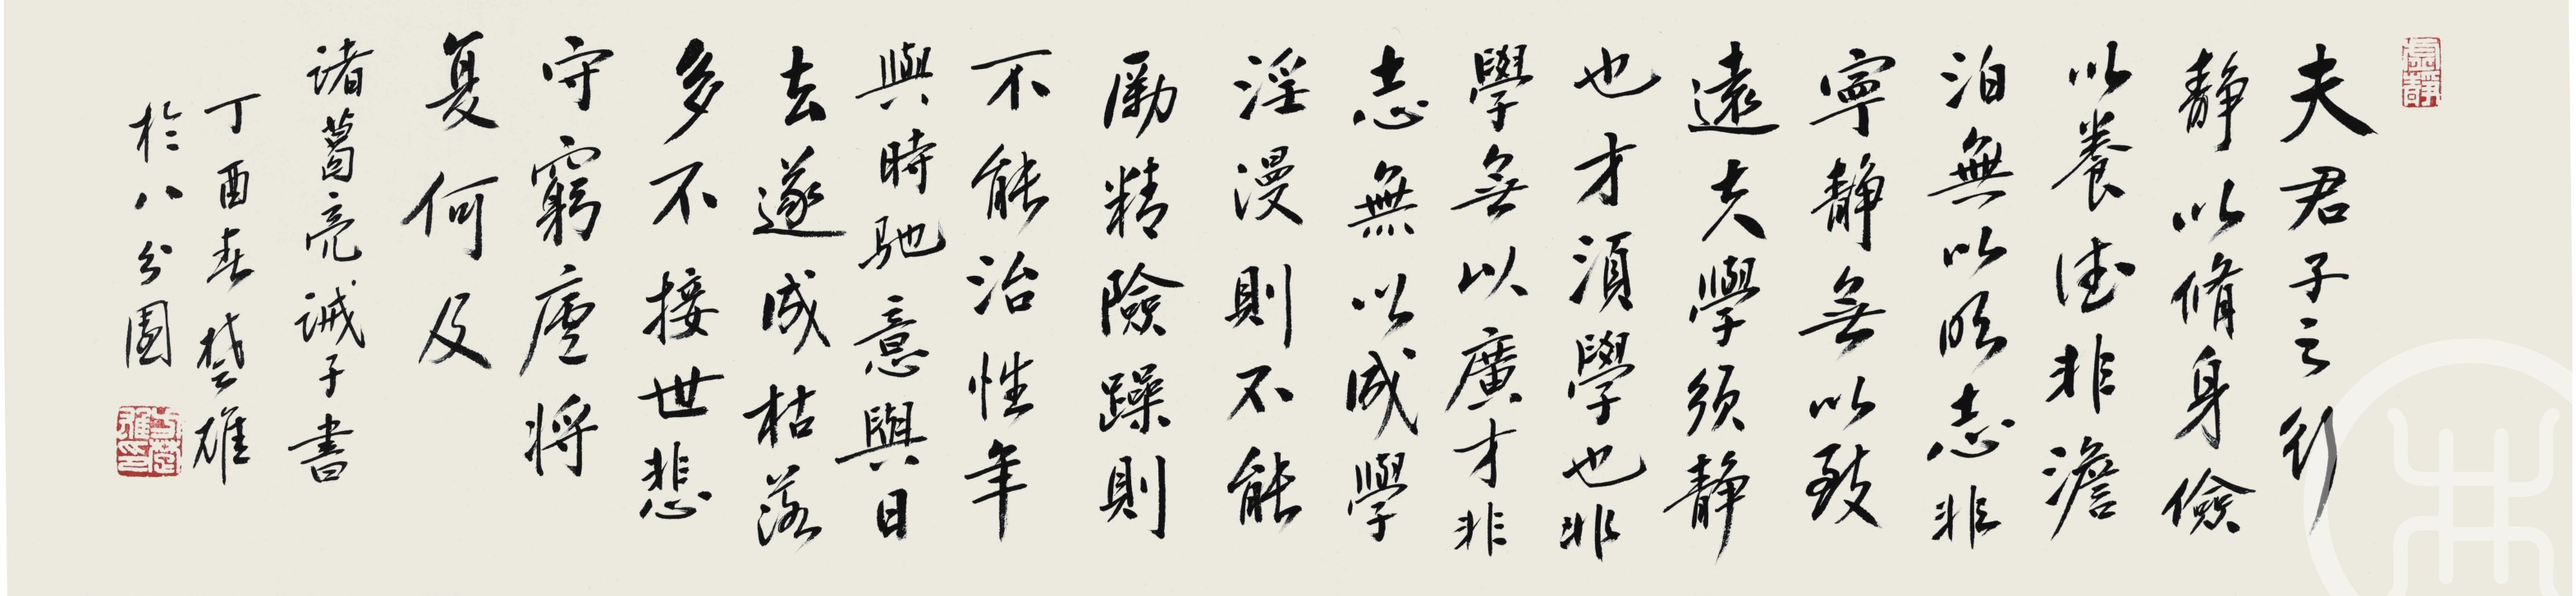 夫君子之行
静以脩身儉
以養德非澹
泊無以明志非
寧静無以致
遠夫學須静
也才須學也非
學無以廣才非
志無以成學
淫漫則不能
勵精險躁則
不能治性年
與時馳意與日
去遂成枯落
多不接世悲
守窮廬将
复何及
诸葛亮诫子書
丁酉春楚雄
於八分園
方楚雄印